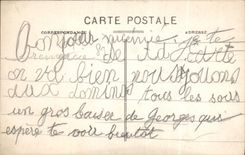 CARTE POSTALE
CORRESPONDANCE ADRESSE
Bonjour je te
de ta carte
on va bien nous jouons
aux dominos tous les soirs
un gros baiser de Georges qui
espère te voir bientot